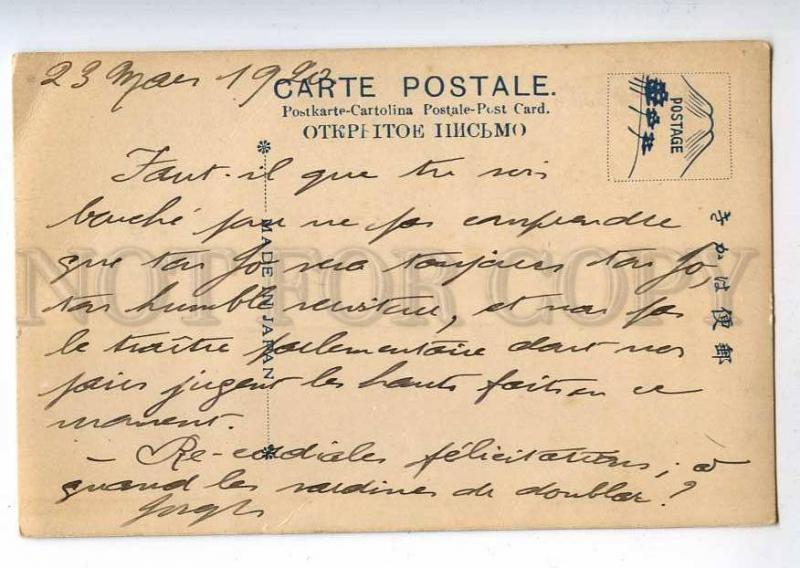 23 Mars 1920
CARTE POSTALE.
Postkarte-Cartolina Postale-Post Card.
ОТКРЫТОЕ ПИСЬМО
POSTAGE
きかは便郵
MADE IN JAPAN
NOT FOR COPY
Faut-il que tu sois
bouché pour ne pas comprendre
que ton Jo sera toujours ton Jo,
ton humble serviteur, et non pas
le traître parlementaire dont nos
pairs jugent les hauts faits en ce
moment.
- Re-cordiales félicitations; à
quand les sardines de doublar?